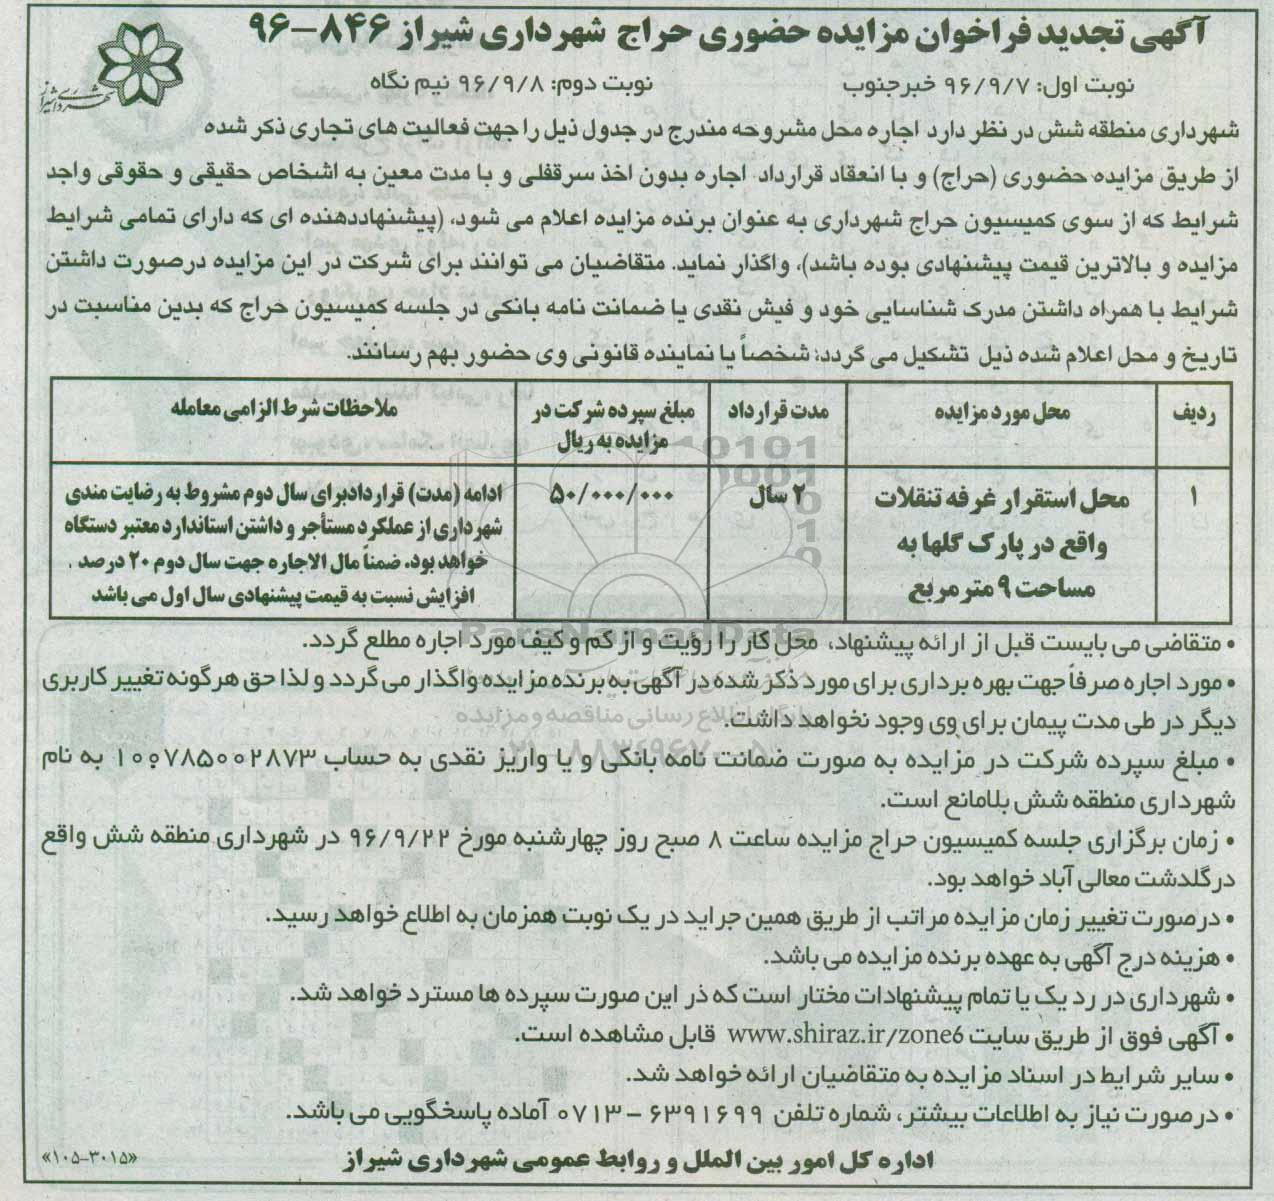 آگهی تجدید فراخوان مزایده حضوری حراج شهرداری شیراز ۸۴۶-۹۶
نوبت اول: ۹۶/۹/۷ خبرجنوب
نوبت دوم: ۹۶/۹/۸ نیم نگاه
شهرداری شیراز
شهرداری منطقه شش در نظر دارد اجاره محل مشروحه مندرج در جدول ذیل را جهت فعالیت های تجاری ذکر شده
از طریق مزایده حضوری (حراج) و با انعقاد قرارداد اجاره بدون اخذ سرقفلی و با مدت معین به اشخاص حقیقی و حقوقی واجد
شرایط که از سوی کمیسیون حراج شهرداری به عنوان برنده مزایده اعلام می شود، (پیشنهاددهنده ای که دارای تمامی شرایط
مزایده و بالاترین قیمت پیشنهادی بوده باشد)، واگذار نماید. متقاضیان می توانند برای شرکت در این مزایده درصورت داشتن
شرایط با همراه داشتن مدرک شناسایی خود و فیش نقدی یا ضمانت نامه بانکی در جلسه کمیسیون حراج که بدین مناسبت در
تاریخ و محل اعلام شده ذیل تشکیل می گردد؛ شخصاً یا نماینده قانونی وی حضور بهم رسانند.
ردیف
محل مورد مزایده
مدت قرارداد
مبلغ سپرده شرکت در
مزایده به ریال
ملاحظات شرط الزامی معامله
۱
محل استقرار غرفه تنقلات
واقع در پارک گلها به
مساحت ۹ مترمربع
۲ سال
۵۰/۰۰۰/۰۰۰
ادامه (مدت) قراردادبرای سال دوم مشروط به رضایت مندی
شهرداری از عملکرد مستأجر و داشتن استاندارد معتبر دستگاه
خواهد بود. ضمناً مال الاجاره جهت سال دوم ۲۰ درصد
افزایش نسبت به قیمت پیشنهادی سال اول می باشد
ParsNamadData
پایگاه اطلاع رسانی مناقصه و مزایده
• متقاضی می بایست قبل از ارائه پیشنهاد، محل کار را رؤیت و از کم و کیف مورد اجاره مطلع گردد.
• مورد اجاره صرفاً جهت بهره برداری برای مورد ذکر شده در آگهی به برنده مزایده واگذار می گردد و لذا حق هرگونه تغییر کاربری
دیگر در طی مدت پیمان برای وی وجود نخواهد داشت.
• مبلغ سپرده شرکت در مزایده به صورت ضمانت نامه بانکی و یا واریز نقدی به حساب ۱۰۰۷۸۵۰۰۲۸۷۳ به نام
شهرداری منطقه شش بلامانع است.
• زمان برگزاری جلسه کمیسیون حراج مزایده ساعت ۸ صبح روز چهارشنبه مورخ ۹۶/۹/۲۲ در شهرداری منطقه شش واقع
در گلدشت معالی آباد خواهد بود.
• درصورت تغییر زمان مزایده مراتب از طریق همین جراید در یک نوبت همزمان به اطلاع خواهد رسید.
• هزینه درج آگهی به عهده برنده مزایده می باشد.
• شهرداری در رد یک یا تمام پیشنهادات مختار است که در این صورت سپرده ها مسترد خواهد شد.
• آگهی فوق از طریق سایت www.shiraz.ir/zone6 قابل مشاهده است.
• سایر شرایط در اسناد مزایده به متقاضیان ارائه خواهد شد.
• درصورت نیاز به اطلاعات بیشتر، شماره تلفن ۶۳۹۱۶۹۹ - ۰۷۱۳ آماده پاسخگویی می باشد.
اداره کل امور بین الملل و روابط عمومی شهرداری شیراز
«۱۰۵-۳۰۱۵»